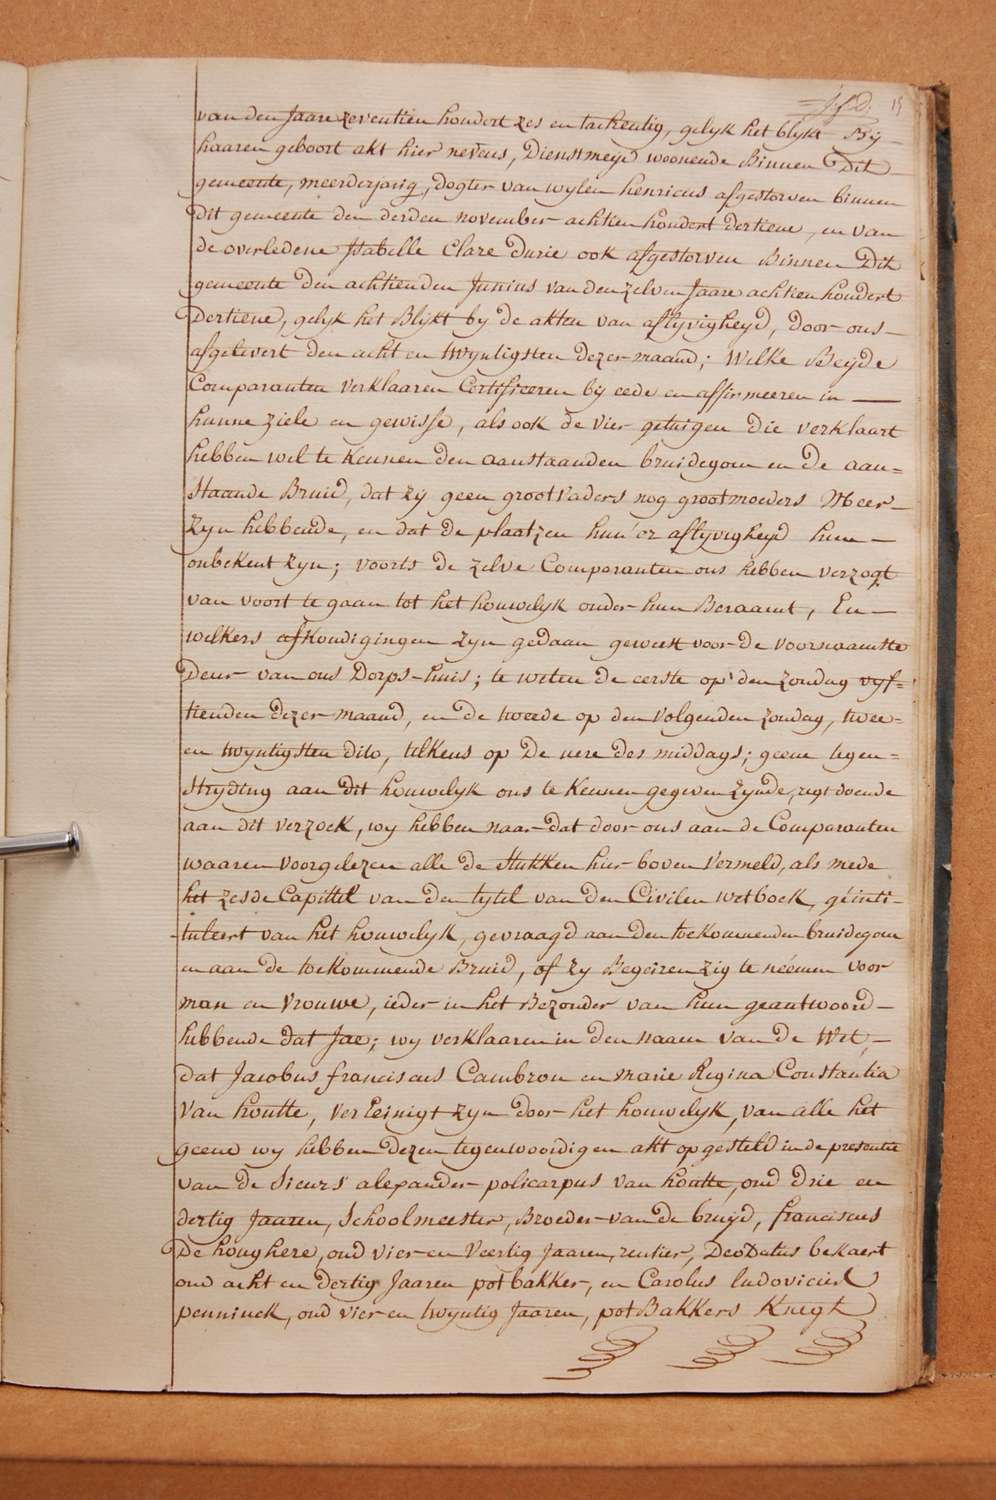 15
van den Jaare zeventien hondert zes en tachentig, gelyk het blykt By
haaren geboort akt hier nevens, Dienstmeijd woonende Binnen Dit
gemeente, meerderjarig, dogter van wylen henricus afgestorven binnen
dit gemeente den derden november achtien hondert dertiene, en van
de overledene Isabelle Clare Durie ook afgestorven Binnen Dit
gemeente Den achtienden Junius van den zelven Jaare achtien hondert
Dertiene, gelyk het Blijkt by de akten van aflyvigheyd, door ons
afgelevert den acht en twyntigsten dezer maand; Welke Beijde
Comparanten verklaaren Certificeren bij eede en affirmeeren in
hunne ziele en gewisse, als ook de vier getuigen die verklaart
hebben wel te kennen den aanstaanden bruidegom en de aan=
staande Bruid, dat zij geen grootvaders nog grootmoeders Meer
Zyn hebbende, en dat de plaatzen hun'er aflyvigheyd hun
onbekent zyn; voorts de zelve Comparanten ons hebben verzogt
van voort te gaan tot het houwelyk onder hun Beraamt, En
welkers afkondigingen zyn gedaan geweest voor de voornaamste
Deur van ons Dorps-huis; te weten de eerste op den zondag vyf=
tienden dezer maand, en de tweede op den volgenden zondag, twee=
en twyntigsten dito, telkens op de uere des middags; geene tegen=
Stryding aan dit houwelyk ons te kennen gegeven zynde, regt doende
aan dit verzoek, wy hebben naar dat door ons aan de Comparanten
waaren voorgelezen alle de Stukken hier boven vermeld, als mede
het zesde Capittel van den tytel van den Civilen wetboek, géinti=
tuleert van het houwelyk, gevraagd aan den toekommenden bruidegom
en aan de toekommende Bruid, of zy Begeiren zig te néemen voor
man en vrouwe, ieder in het Bezonder van hun geantwoord
hebbende dat Jae; wy verklaaren in den naam van de Wet,
dat Jacobus franciscus Cambron en marie Regina Constantia
van houtte, vereinigt zyn door het houwelyk, van alle het
geene wy hebben dezen tegenwoordigen akt opgesteld in de presentie
van de Sieurs alexander policarpus van houtte, oud drie en
dertig Jaaren, Schoolmeester, Broeder van de bruijd, franciscus
De houghere, oud vier en veertig Jaaren, rentier, Deodatus bekaert
oud acht en dertig Jaaren potbakker, en Carolus ludovicus
penninck, oud vier en twyntig Jaaren, potBakkers Knegt